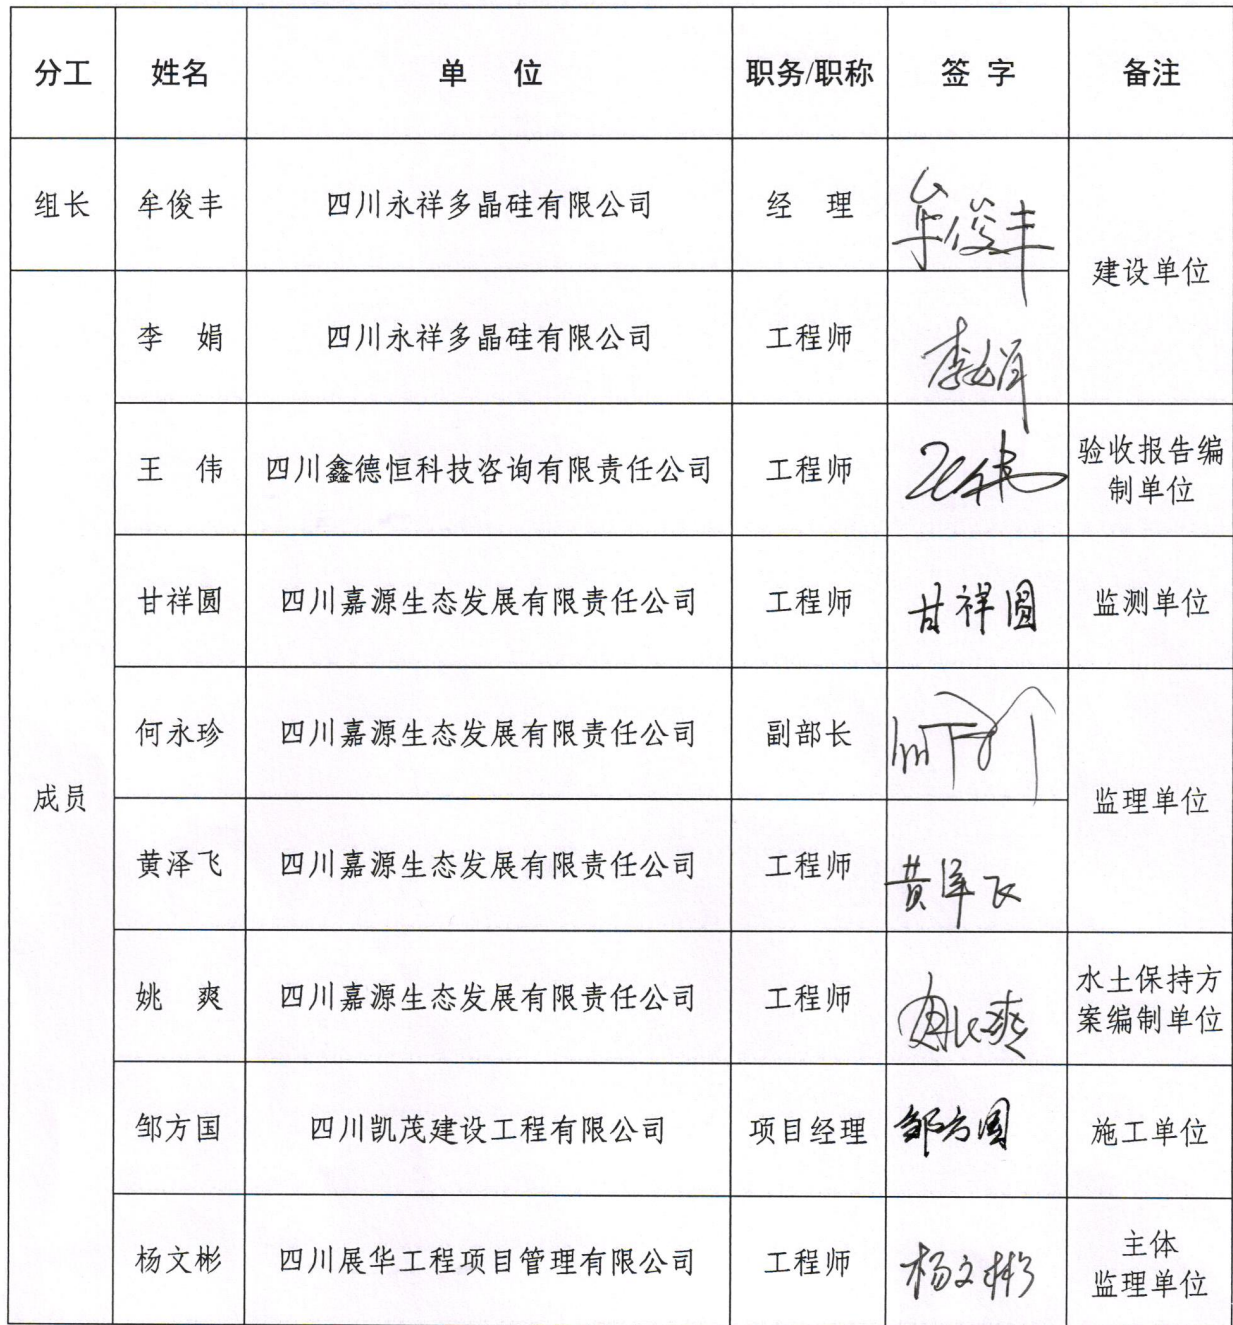 分工 姓名 单 位 职务/职称 签 字 备注
组长 牟俊丰 四川永祥多晶硅有限公司 经 理 牟俊丰
建设单位
李 娟 四川永祥多晶硅有限公司 工程师 李娟
王 伟 四川鑫德恒科技咨询有限责任公司 工程师 王伟 验收报告编
制单位
甘祥圆 四川嘉源生态发展有限责任公司 工程师 甘祥圆 监测单位
何永珍 四川嘉源生态发展有限责任公司 副部长
成员 监理单位
黄泽飞 四川嘉源生态发展有限责任公司 工程师 黄泽飞
姚 爽 四川嘉源生态发展有限责任公司 工程师 姚爽 水土保持方
案编制单位
邹方国 四川凯茂建设工程有限公司 项目经理 邹方国 施工单位
杨文彬 四川展华工程项目管理有限公司 工程师 杨文彬 主体
监理单位